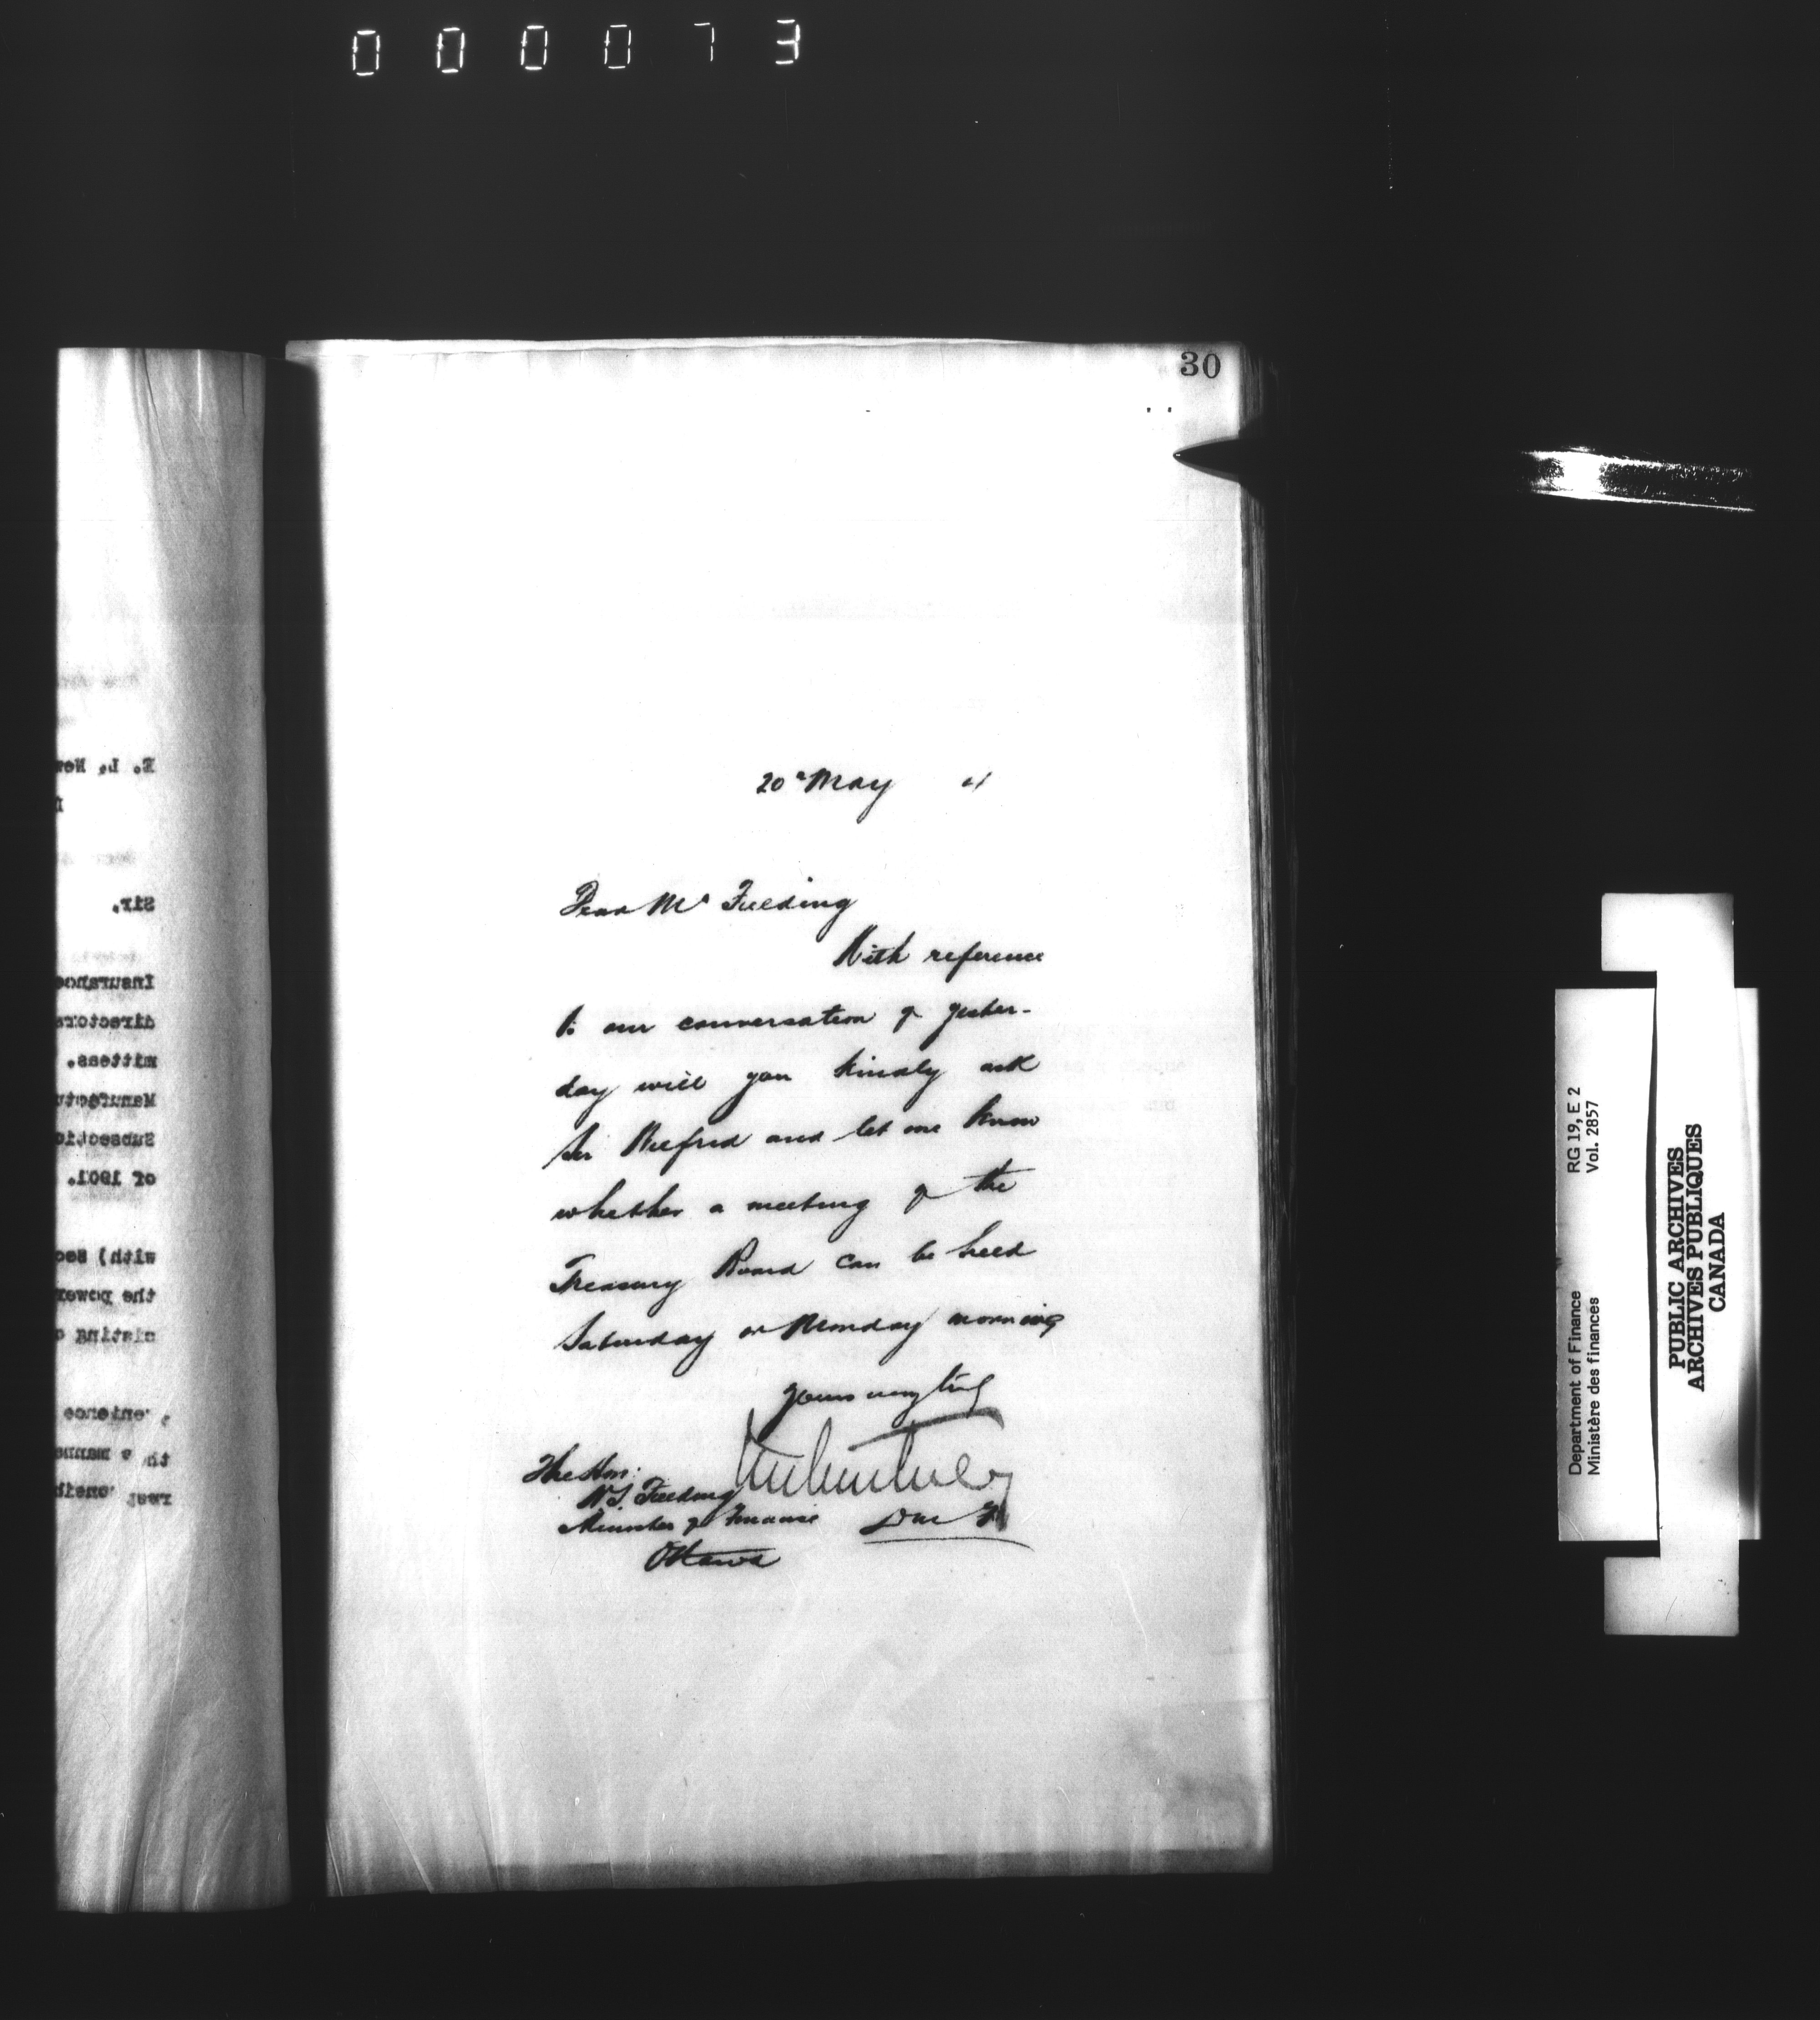 000073
30
20th May 01
Dear Mr Fielding
With reference
to our conversation of yester-
day will you kindly ask
Sir Wilfrid and let me know
whether a meeting of the
Treasury Board can be held
Saturday or Monday morning
Yours very truly
The Hon:
W.S. Fielding
Minister of Finance
Ottawa
E. L. New
Sir.
Insurance
directors
mittees.
Manufactu
Subsectio
of 1901.
with) Sec
the power
the manne
RG 19, E 2
Vol. 2857
Department of Finance
Ministère des finances
PUBLIC ARCHIVES
ARCHIVES PUBLIQUES
CANADA